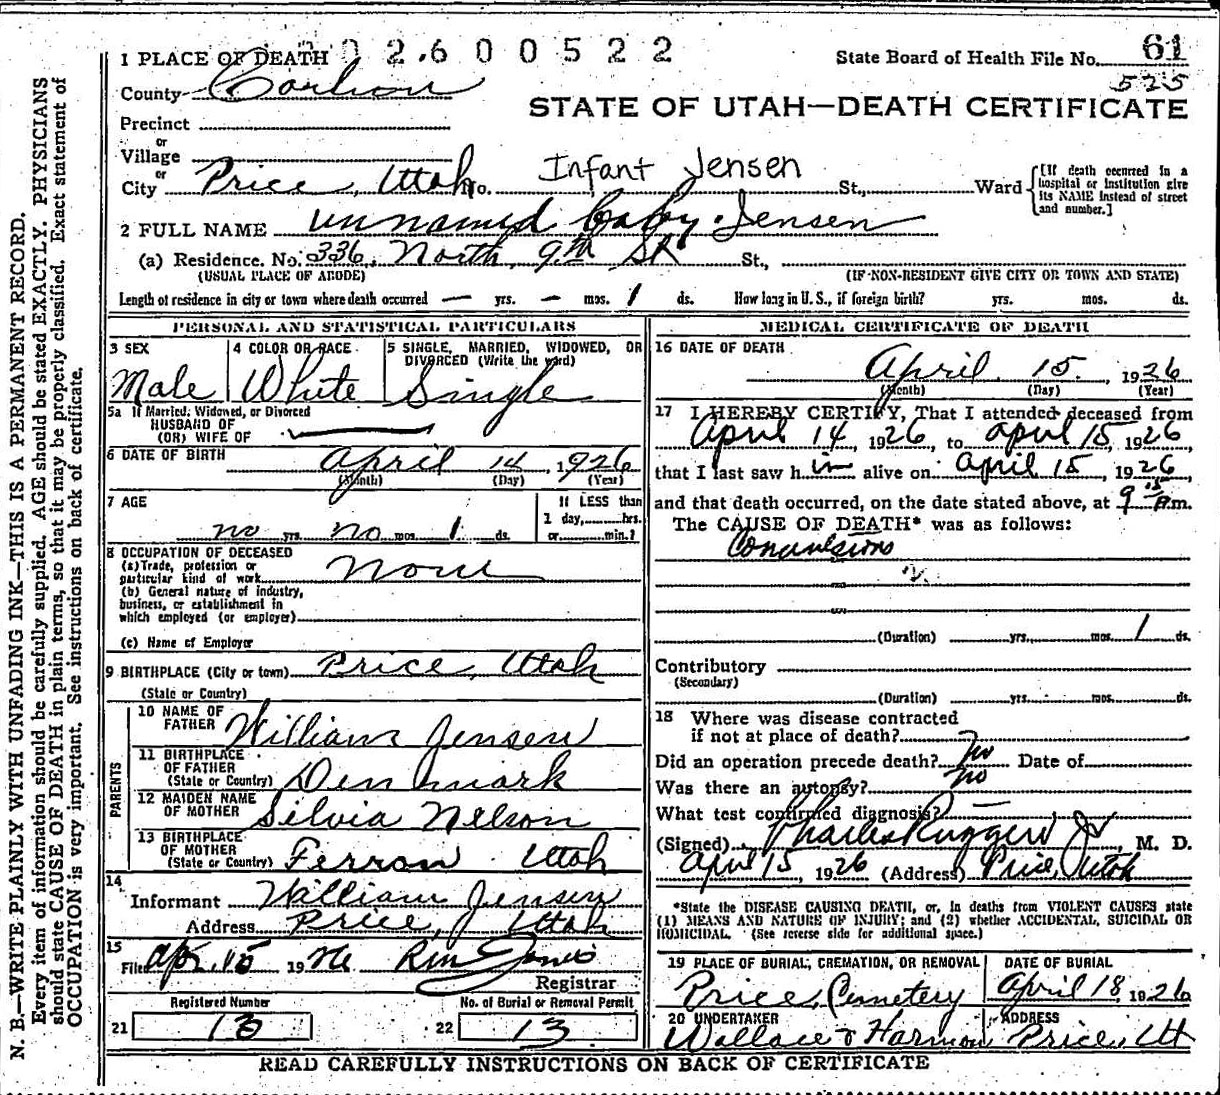 N. B.—WRITE PLAINLY WITH UNFADING INK—THIS IS A PERMANENT RECORD.
Every item of information should be carefully supplied. AGE should be stated EXACTLY. PHYSICIANS
should state CAUSE OF DEATH in plain terms, so that it may be properly classified. Exact statement of
OCCUPATION is very important. See instructions on back of certificate.
2600522
1 PLACE OF DEATH
State Board of Health File No. 61
525
County Carbon
STATE OF UTAH—DEATH CERTIFICATE
Precinct
or
Village
or
Infant Jensen
City Price, Utah No. St., Ward
[If death occurred in a hospital or institution give its NAME instead of street and number.]
2 FULL NAME unnamed baby Jensen
(a) Residence. No. 336 North 9th St St.,
(USUAL PLACE OF ABODE) (IF NON-RESIDENT GIVE CITY OR TOWN AND STATE)
Length of residence in city or town where death occurred — yrs. — mos. 1 ds. How long in U. S., if foreign birth? yrs. mos. ds.
PERSONAL AND STATISTICAL PARTICULARS
3 SEX
Male
4 COLOR OR RACE
White
5 SINGLE, MARRIED, WIDOWED, OR
DIVORCED (Write the word)
Single
5a If Married, Widowed, or Divorced
HUSBAND OF
(OR) WIFE OF
6 DATE OF BIRTH April 14 1926
(Month) (Day) (Year)
7 AGE
no yrs. no mos. 1 ds.
If LESS than
1 day, hrs.
or min.?
8 OCCUPATION OF DECEASED
(a) Trade, profession or
particular kind of work None
(b) General nature of industry,
business, or establishment in
which employed (or employer)
(c) Name of Employer
9 BIRTHPLACE (City or town) Price, Utah
(State or Country)
PARENTS
10 NAME OF
FATHER William Jensen
11 BIRTHPLACE
OF FATHER
(State or Country) Denmark
12 MAIDEN NAME
OF MOTHER Silvia Nelson
13 BIRTHPLACE
OF MOTHER
(State or Country) Ferron Utah
14
Informant William Jensen
Address Price, Utah
15
Filed Apr. 15 1926 Jones
Registrar
Registered Number
21 13
No. of Burial or Removal Permit
22 13
MEDICAL CERTIFICATE OF DEATH
16 DATE OF DEATH
April 15, 1926
(Month) (Day) (Year)
17 I HEREBY CERTIFY, That I attended deceased from
April 14 1926, to April 15, 1926
that I last saw h im alive on April 15, 1926
and that death occurred, on the date stated above, at 9 15 m.
The CAUSE OF DEATH* was as follows:
Convulsions
(Duration) yrs. mos. 1 ds.
Contributory
(Secondary)
(Duration) yrs. mos. ds.
18 Where was disease contracted
if not at place of death?
Did an operation precede death? no Date of
Was there an autopsy? no
What test confirmed diagnosis? —
(Signed) Charles Ruggeri Jr, M. D.
April 15, 1926 (Address) Price, Utah
*State the DISEASE CAUSING DEATH, or, in deaths from VIOLENT CAUSES state
(1) MEANS AND NATURE OF INJURY; and (2) whether ACCIDENTAL, SUICIDAL OR
HOMICIDAL. (See reverse side for additional space.)
19 PLACE OF BURIAL, CREMATION, OR REMOVAL
Price, Cemetery
DATE OF BURIAL
April 18, 1926
20 UNDERTAKER
Wallace & Harmon
ADDRESS
Price, Ut
READ CAREFULLY INSTRUCTIONS ON BACK OF CERTIFICATE